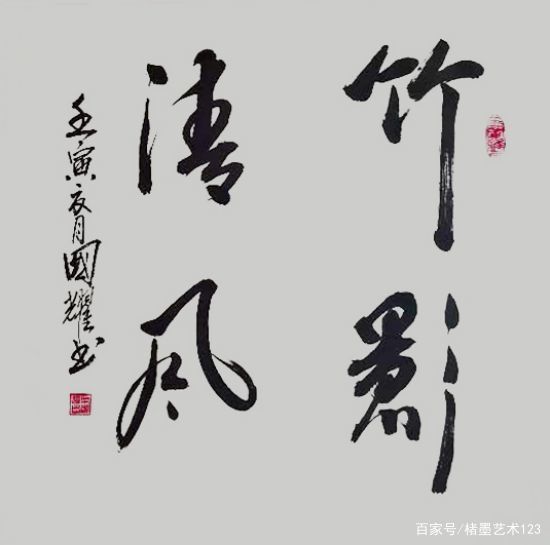 竹影
清风
壬寅夏月國耀书
百家号/楮墨艺术123